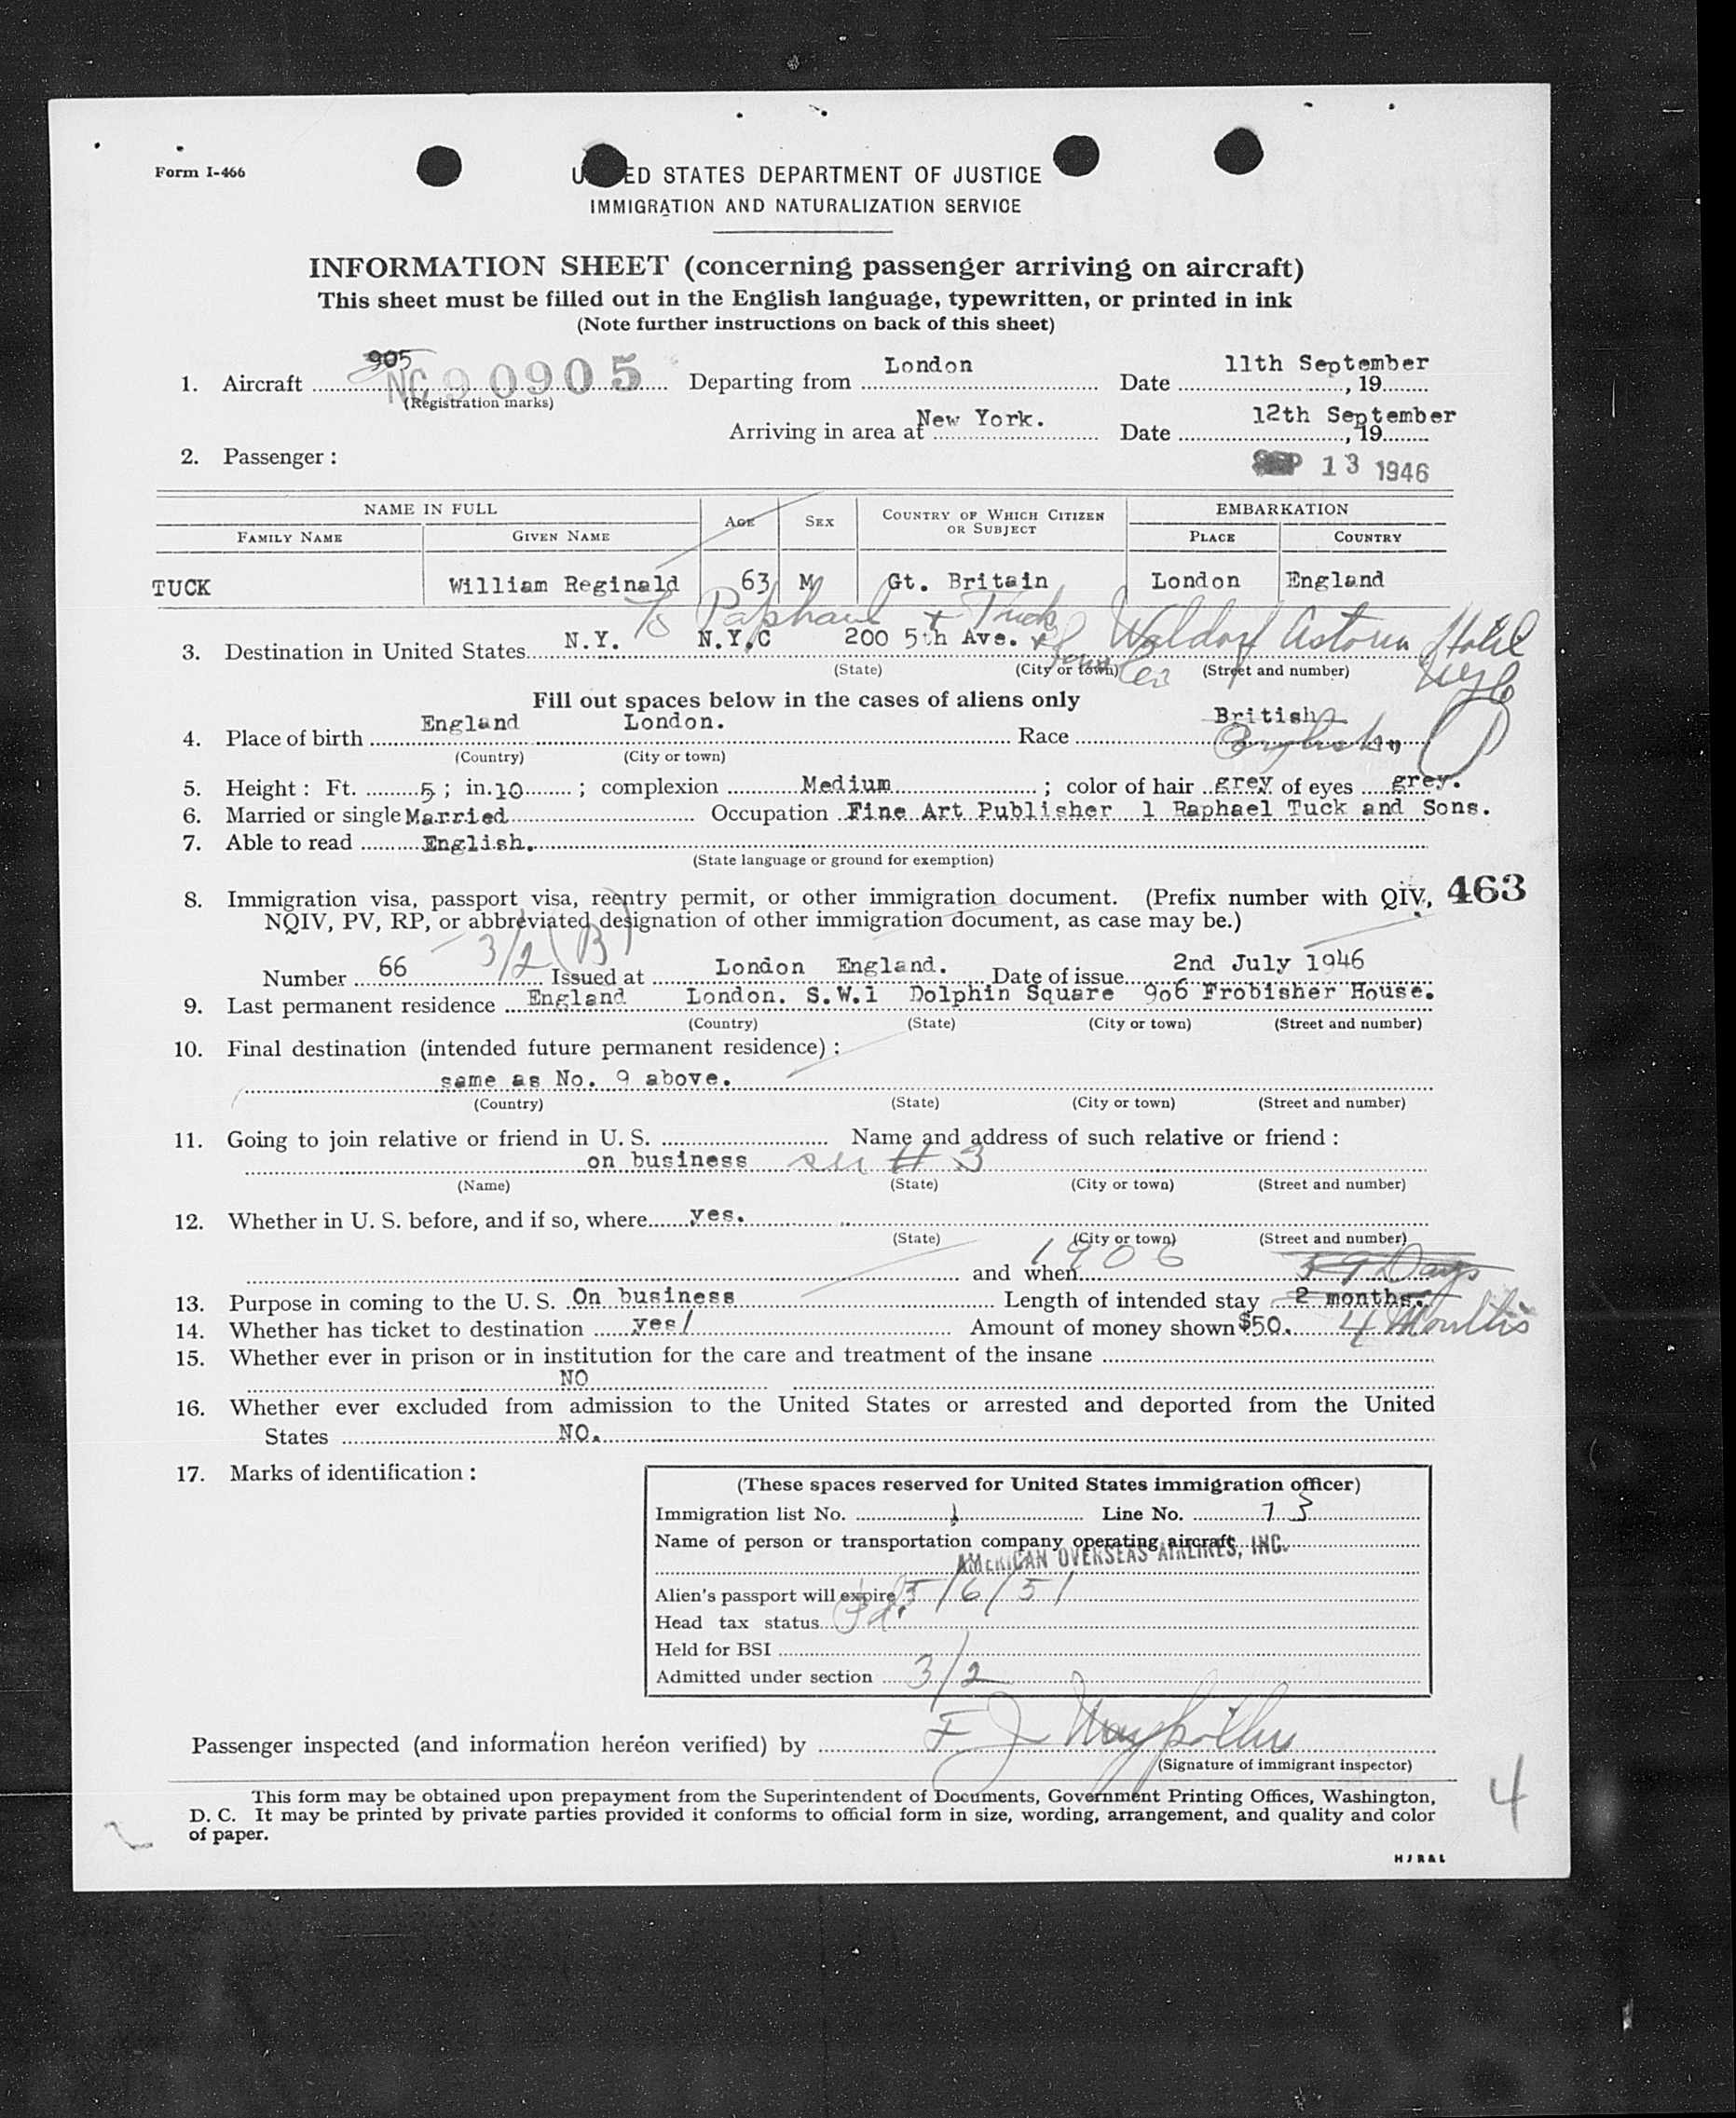 Form I-466
UNITED STATES DEPARTMENT OF JUSTICE
IMMIGRATION AND NATURALIZATION SERVICE
INFORMATION SHEET (concerning passenger arriving on aircraft)
This sheet must be filled out in the English language, typewritten, or printed in ink
(Note further instructions on back of this sheet)
905
1. Aircraft NC 90905 Departing from London Date 11th September, 19
(Registration marks)
Arriving in area at New York. Date 12th September, 19
2. Passenger :
SEP 13 1946
NAME IN FULL AGE SEX COUNTRY OF WHICH CITIZEN OR SUBJECT EMBARKATION
FAMILY NAME GIVEN NAME PLACE COUNTRY
TUCK William Reginald 63 M Gt. Britain London England
To Raphael + Tuck
3. Destination in United States N.Y. N.Y.C 200 5th Ave. Waldorf Astoria Hotel
(State) (City or town) (Street and number) NYC
Fill out spaces below in the cases of aliens only
4. Place of birth England London. Race British English
(Country) (City or town)
5. Height : Ft. 5 ; in. 10 ; complexion Medium ; color of hair grey of eyes grey.
6. Married or single Married Occupation Fine Art Publisher 1 Raphael Tuck and Sons.
7. Able to read English.
(State language or ground for exemption)
8. Immigration visa, passport visa, reentry permit, or other immigration document. (Prefix number with QIV, 463
NQIV, PV, RP, or abbreviated designation of other immigration document, as case may be.)
Number 66 3/2 (B) Issued at London England. Date of issue 2nd July 1946
9. Last permanent residence England London. S.W.1 Dolphin Square 906 Frobisher House.
(Country) (State) (City or town) (Street and number)
10. Final destination (intended future permanent residence) :
same as No. 9 above.
(Country) (State) (City or town) (Street and number)
11. Going to join relative or friend in U. S. Name and address of such relative or friend :
on business see # 3
(Name) (State) (City or town) (Street and number)
12. Whether in U. S. before, and if so, where yes.
(State) (City or town) (Street and number)
and when 1906 59 Days
13. Purpose in coming to the U. S. On business Length of intended stay 2 months.
14. Whether has ticket to destination yes/ Amount of money shown $50. 4 Months
15. Whether ever in prison or in institution for the care and treatment of the insane
NO
16. Whether ever excluded from admission to the United States or arrested and deported from the United
States NO.
17. Marks of identification :
(These spaces reserved for United States immigration officer)
Immigration list No. 1 Line No. 13
Name of person or transportation company operating aircraft
AMERICAN OVERSEAS AIRLINES, INC.
Alien's passport will expire 5/6/51
Head tax status Pd.
Held for BSI
Admitted under section 3/2
Passenger inspected (and information hereon verified) by F J
(Signature of immigrant inspector)
This form may be obtained upon prepayment from the Superintendent of Documents, Government Printing Offices, Washington,
D. C. It may be printed by private parties provided it conforms to official form in size, wording, arrangement, and quality and color
of paper.
4
H J R & L